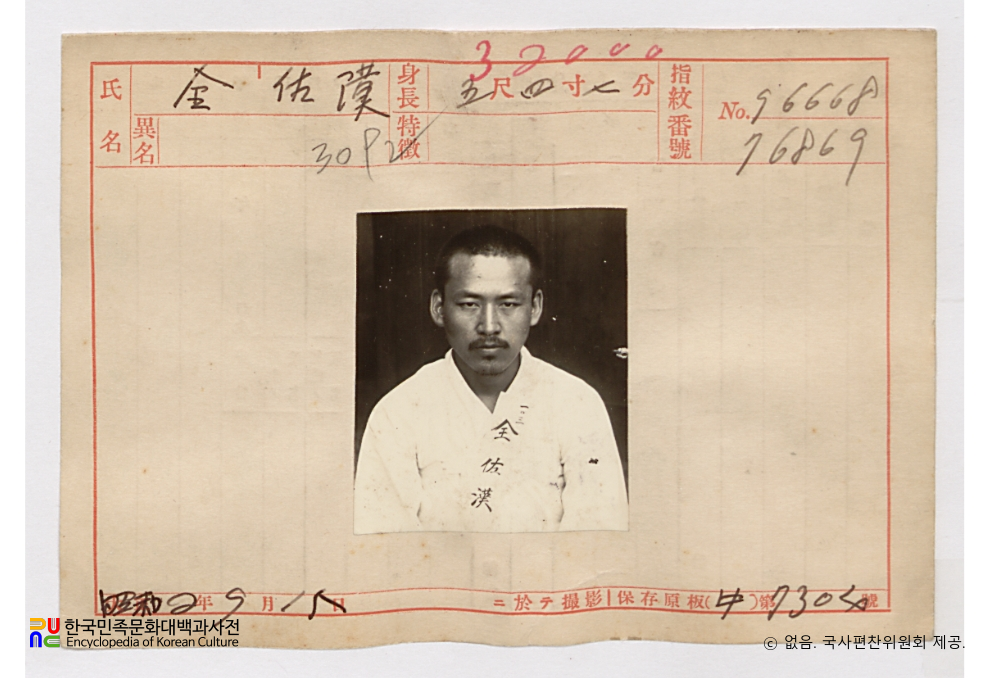 32000
氏名 全佐漢 身長 五尺四寸七分 指紋番號 No.96668
異名 3092 特徵 76869
全
佐
漢
昭和2年9月15日ニ於テ撮影 保存原板(中)第7304號
한국민족문화대백과사전
Encyclopedia of Korean Culture
ⓒ 없음. 국사편찬위원회 제공.